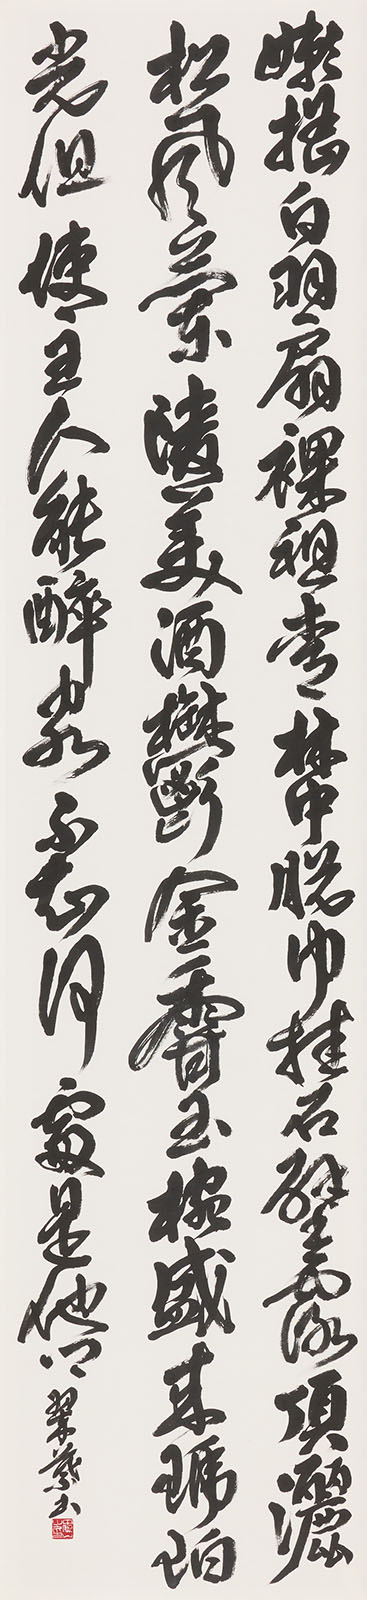 嬾搖白羽扇裸袒青林中脫巾挂石壁露頂灑
松風蘭陵美酒鬱金香玉椀盛來琥珀
光但使主人能醉客不知何處是他鄉
翠書